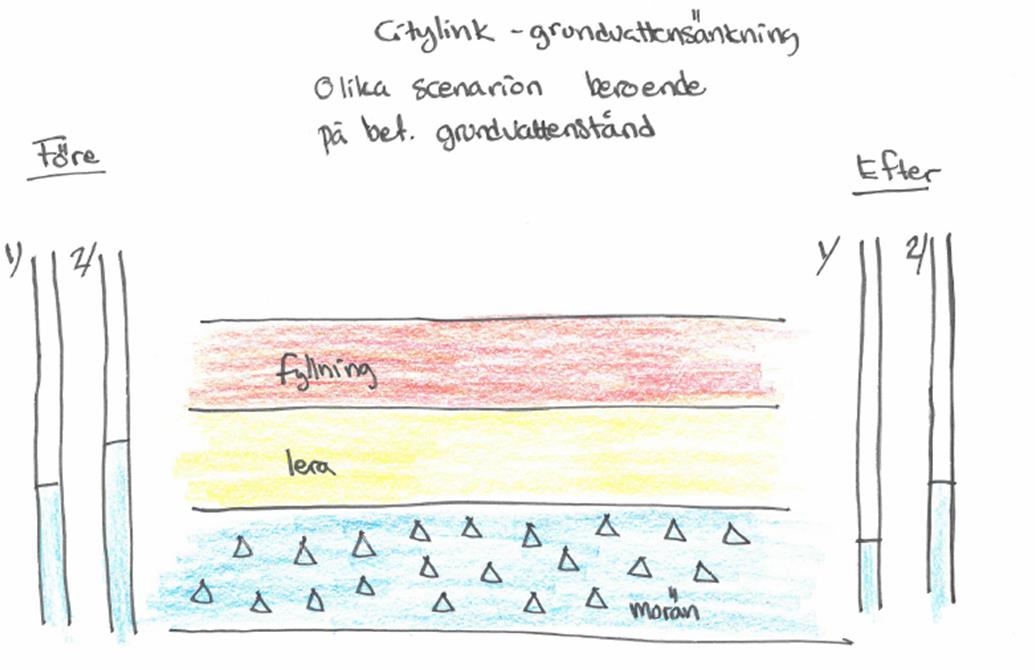 Citylink - grundvattensänkning
Olika scenarion beroende
på bef. grundvattenstånd
Före
Efter
1/ 2/
1/ 2/
fyllning
lera
morän